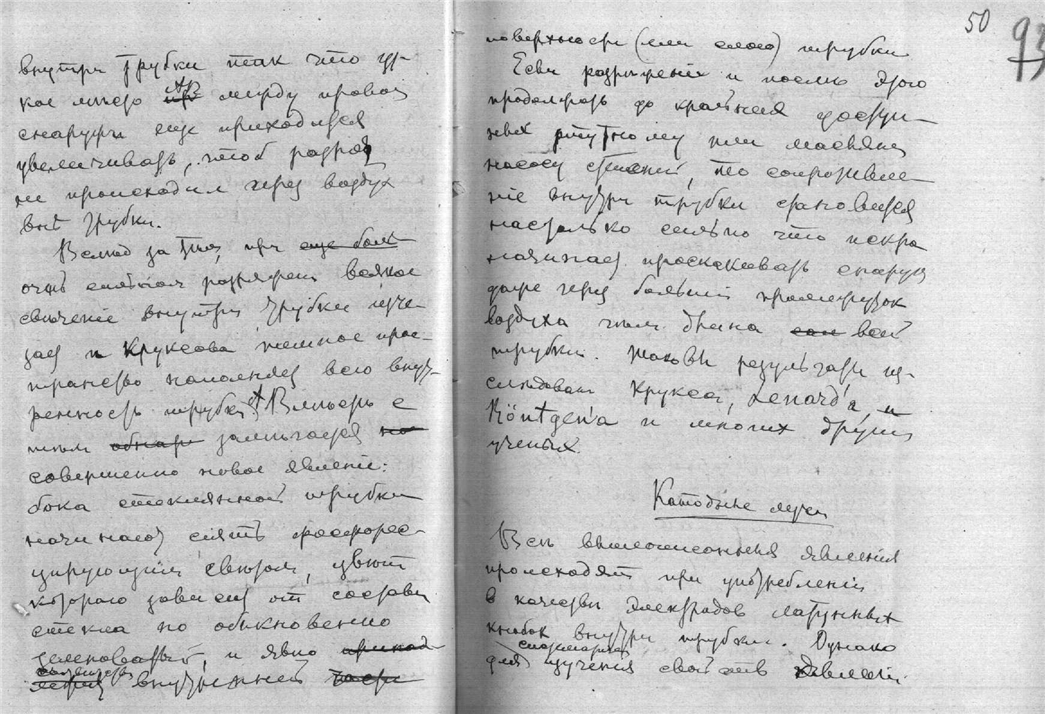 внутри трубки так что уз-
кое место AB между провод
снаружи еще приходится
увеличивать, чтоб разряд
не происходил через воздух
внѣ трубки.
Вслѣд за тѣм, при еще болѣ
очень сильном разряжении всякое
свечение внутри трубки исче-
зает и Круксово темное прос-
транство наполняет всю внут-
ренность трубки. Вмѣстѣ с
тѣм замѣчается
совершенно новое явление:
бока стеклянной трубки
начинают сиять фосфорес-
цирующим свѣтом, цвѣт
которого зависит от состава
стекла по обыкновению
зеленоватый, и явно
внутренней части
50
93
поверхности (или слою) трубки
Если разрѣжение и послѣ этого
продолжать до крайней доступ-
ных ртутному или масляному
насосу степени, то сопротивле-
ние внутри трубки становится
настолько сильно что искра
начинает проскакивать снаружи
даже через больший промежуток
воздуха чѣм длина всей
трубки. Таковы результаты из-
слѣдован Крукса, Lenard'a, и
Röntgen'a и многих других
ученых.
Катодные лучи
Всѣ вышеописанныя явления
происходят при употреблении
в качествѣ электродов латунных
кнопок внутри трубки. Однако
для изучения свойств явлений.